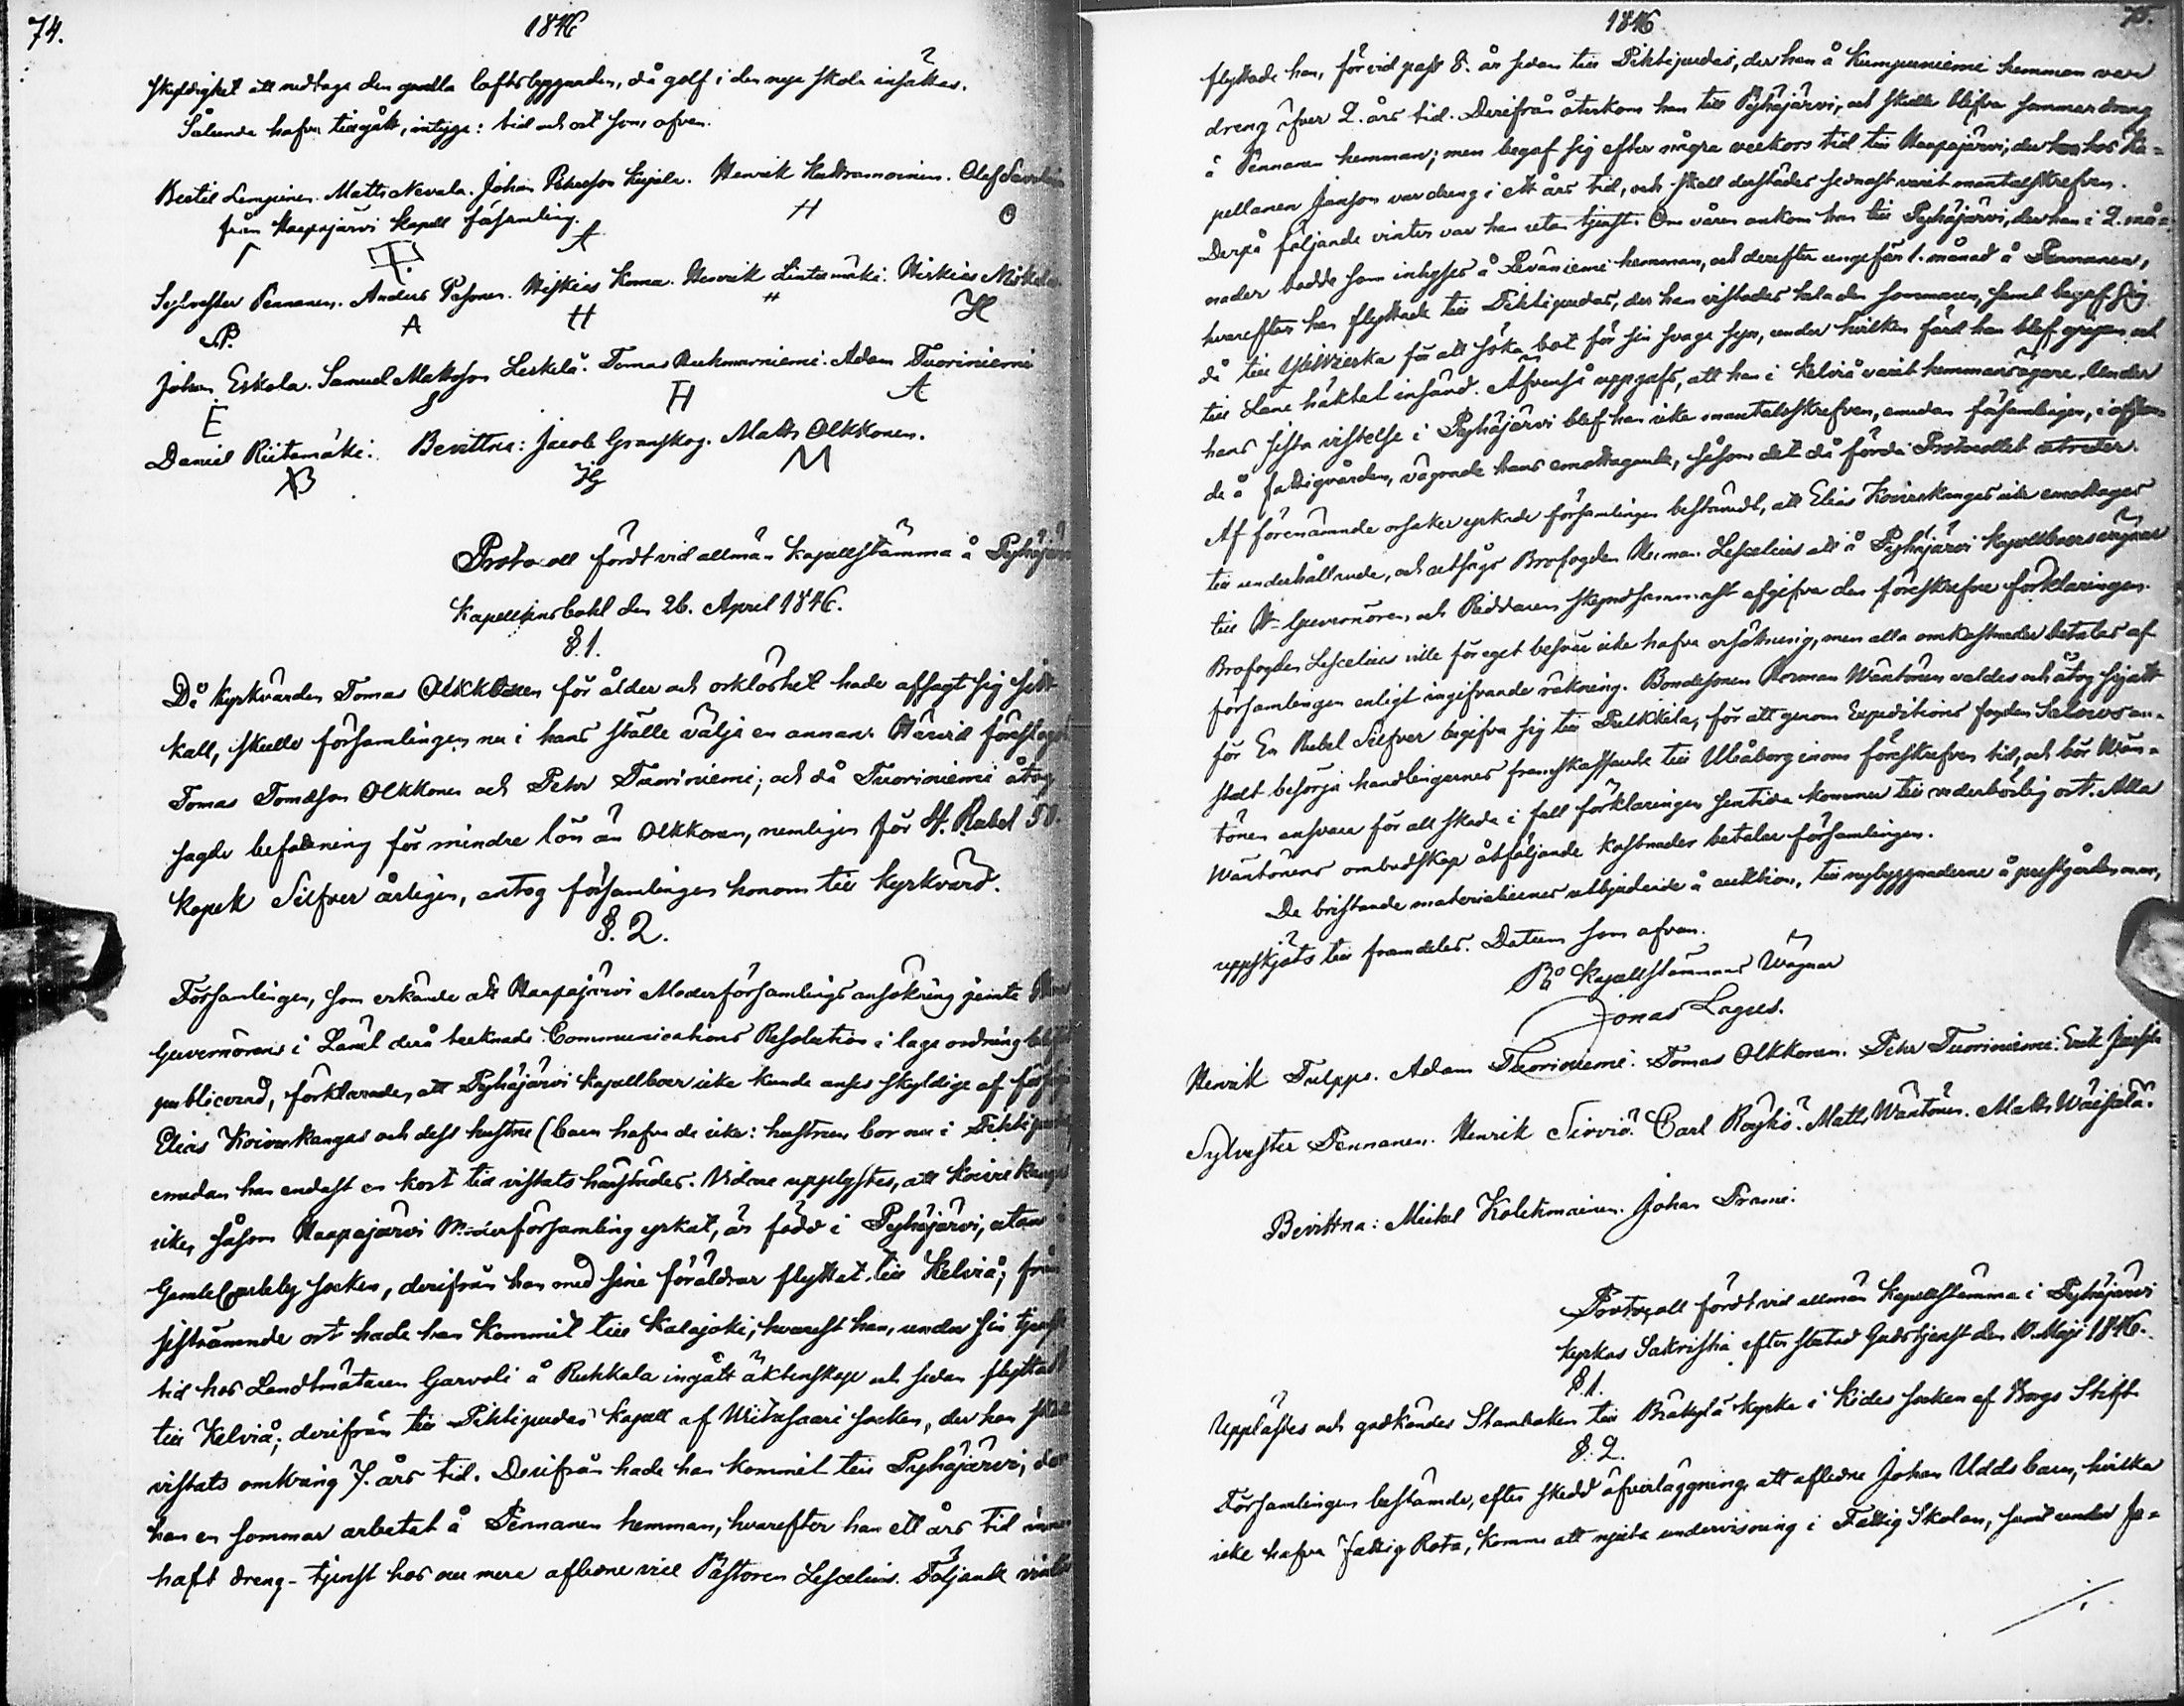 74.
1846
skyldighet att nedtaga den gamla loftsbyggnaden, då golf i den nya skola insättes.
Sålunda hafva tillgått, intyga: tid och ort som ofvan.
Bertil Lempinen. Matts Nevala. Johan Petersson Kujala. Henrik Olof
från Haapajärvi Kapell församling.
H O
A
Sylvester Pennanen. Anders Pasonen. Hiskias Koma. Henrik Lintumäki. Hiskias
P. A H H
Johan Eskola. Samuel Mattsson Leskelä. Tomas Ruhmanniemi. Adam Tuoriniemi
E S H A
Daniel Riitamäki. Bevittna: Jacob Granskog. Matts Olkkonen.
JG M
Protocoll fördt vid allmän Kapellstämma å Pyhäjärvi
Kapellansbohl den 26. April 1846.
§. 1.
Då kyrkvärden Tomas Olkkonen för ålder och orkeslöshet hade afsagt sig sitt
kall, skulle församlingen nu i hans ställe välja en annan. Härvid föreslogs
Tomas Tomasson Olkkonen och Petor Tuoriniemi; och då Tuoriniemi åtog
sagde befattning för mindre lön än Olkkonen, nemligen för 4. Rubel 50.
Kopek Silfver årligen, antog församlingen honom till Kyrkvärd.
§. 2.
Församlingen, som erkände att Haapajärvi Moderförsamlings ansökning jemte
Guvernörens i Länet derå tecknade Communications Resolution i laga ordning blifvit
publicerad, förklarade, att Pyhäjärvi kapellboer icke kunde anses skyldige af
Elias Koivukangas och dess hustru (barn hafva de icke: hustrun bor nu i Pihtipudas)
emedan han endast en kort tid vistats härstädes. Vidare upplystes, att Koivukangas
icke, såsom Haapajärvi Moderförsamling yrkat, är född i Pyhäjärvi, utan i
Gamle Carleby socken, derifrån han med sine föräldrar flyttat till Kelviå; från
sistnämnde ort hade han kommit till Kalajoki, hvarest han, under sin tjenste
tid hos Landtmätaren Garvoli å Ruhkala ingått äktenskap och sedan flyttat
till Kelviå; derifrån till Pihtipudas kapell af Viitasaari socken, der han skall
vistats omkring 7. års tid. Derifrån hade han kommit till Pyhäjärvi, der
han en sommar arbetat å Pennanen hemman, hvarefter han ett års tid inne-
haft dreng-tjenst hos nu mera aflidne vice Pastoren Lescelius. Följande vinter
1846
75.
flyttade han, för vid pass 8. år sedan till Pihtipudas, der han å Kumpuniemi hemman var
dreng öfver 2. års tid. Derifrån återkom han till Pyhäjärvi, och skulle blifva sommardreng
å Pennanen hemman; men begaf sig efter några veckors tid till Haapajärvi, der han hos Ka-
pellanen Janson var dreng i ett års tid, och skall derstädes sednast varit mantalskrefven.
Derpå följande vinter var han utan tjenst. Om våren ankom han till Pyhäjärvi, der han i 2. må-
nader bodde som inhyses å Leväniemi hemman, och derefter ungefär 1. månad å Pennanen,
hvarefter han flyttade till Pihtipudas, der han vistades hela den sommaren, samt begaf sig
då till Ylivieska för att söka bot för sin svaga syn, under hvilken färd han blef gripen och
till Läne häktet insänd. Äfvenså uppgafs, att han i Kelviå varit hemmansägare. Under
hans sista vistelse i Pyhäjärvi blef han icke mantalsskrefven, emedan församlingen, i afseen-
de å fattigvården, vägrade hans emottagande, såsom det då förda Protocollet utreder.
Af förenämnde orsaker yrkade församlingen bestämdt, att Elias Koivukangas icke emottages
till underhållande, och utsågs Brofogden Herman Lescelius att å Pyhäjärvi Kapellboers vägnar
till Hr Guvernören och Riddaren skyndsammast afgifva den föreskrefne förklaringen.
Brofogden Lescelius ville för eget besvär icke hafva ersättning, men alla omkostnader betalas af
församlingen enligt ingifvande räkning. Bondesonen Herman Wäntönen valdes och åtog sig att
för En Rubel Silfver begifva sig till Pulkkila, för att genom Expeditions fogden Salovius an-
stalt besörja handlingarnes framskaffande till Uleåborg inom föreskrefven tid, och bör Wän-
tönen ansvara för all skada i fall förklaringen sentida kommer till vederbörlig ort. Alla
Wäntönens ombudskap åtföljande kostnader betalar församlingen.
De bristande materialiernas utbjudande å auktion, till nybyggnaderne å prestgården
uppskjöts till framdeles. Datum som ofvan.
På Kapellstämmans Wägnar
Jonas Lagus.
Henrik Tulppo. Adam Tuoriniemi. Tomas Olkkonen. Petor Tuoriniemi. Erik
Sylvester Pennanen. Henrik Sirviö. Carl Röyhiö. Matts Wäntönen. Matts Wäisälä.
Bevittna: Mickel Kolehmainen. Johan Frami.
Protocoll fördt vid allmän Kapellstämma i Pyhäjärvi
kyrkas Sakristia efter slutad Gudstjenst den 10. Maji 1846.
§ 1.
Upplästes och godkändes Stamboken till Bräkylä kyrka i Kides socken af Borgo Stift.
§. 2.
Församlingen bestämde, efter skedd öfverläggning, att aflidne Johan Udds barn, hvilka
icke hafva fattig Rota, komma att njuta undervisning i Fattig Skolan, samt under so-